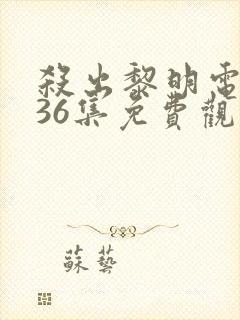 殺出黎明電
36集免費觀
蘇藝